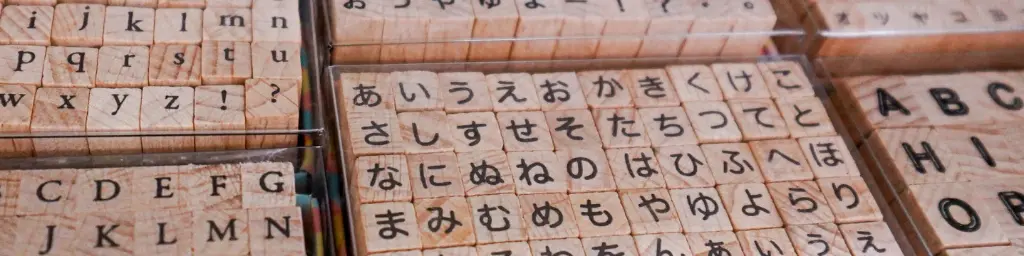 i j k l m n
p q r s t u
w x y z ! ?
C D E F G
J K L M N
あ い う え お か き く け こ
さ し す せ そ た ち つ て と
な に ぬ ね の は ひ ふ へ ほ
ま み む め も や ゆ よ ら り
を ん ぁ ぃ ぅ ぇ
A B C
H I
O